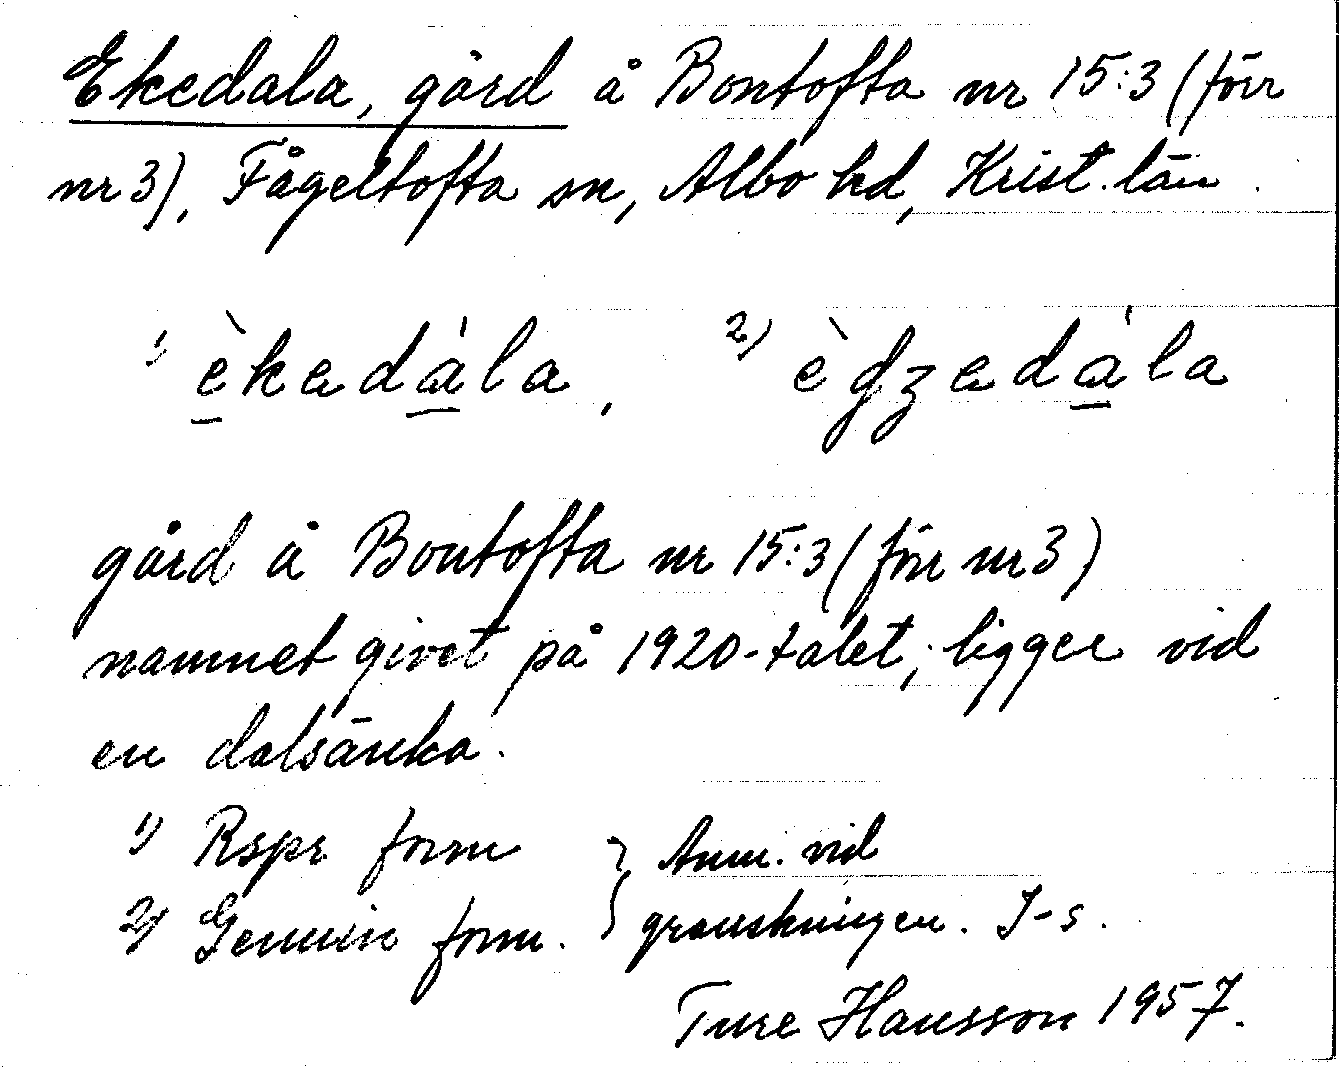 Ekedala, gård å Bontofta nr 15:3 (förr
nr 3), Fågeltofta sn, Albo hd, Krist. län.
1) èkedàla, 2) ègʒedàla
gård å Bontofta nr 15:3 (förr nr 3)
namnet givet på 1920-talet, ligger vid
en dalsänka.
1) Rspr form } Anm. vid
2) Genuin form. } granskningen. I-s.
Ture Hansson 1957.